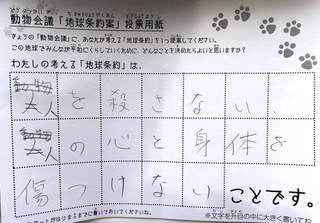 動物会議「地球条約案」投票用紙
きょうの「動物会議」に、あなたが考える「地球条約」を1つ提案してください。
この地球でみんなが平和にくらしていくために、どんなことを決めたらよいと思いますか?
わたしの考える「地球条約」は、
動物
大人を殺さない、
動物
大人の心と身体を
傷つけない ことです。
はじまるまでに書いておいてくださいね。
※文字を升目の中に大きく書いて